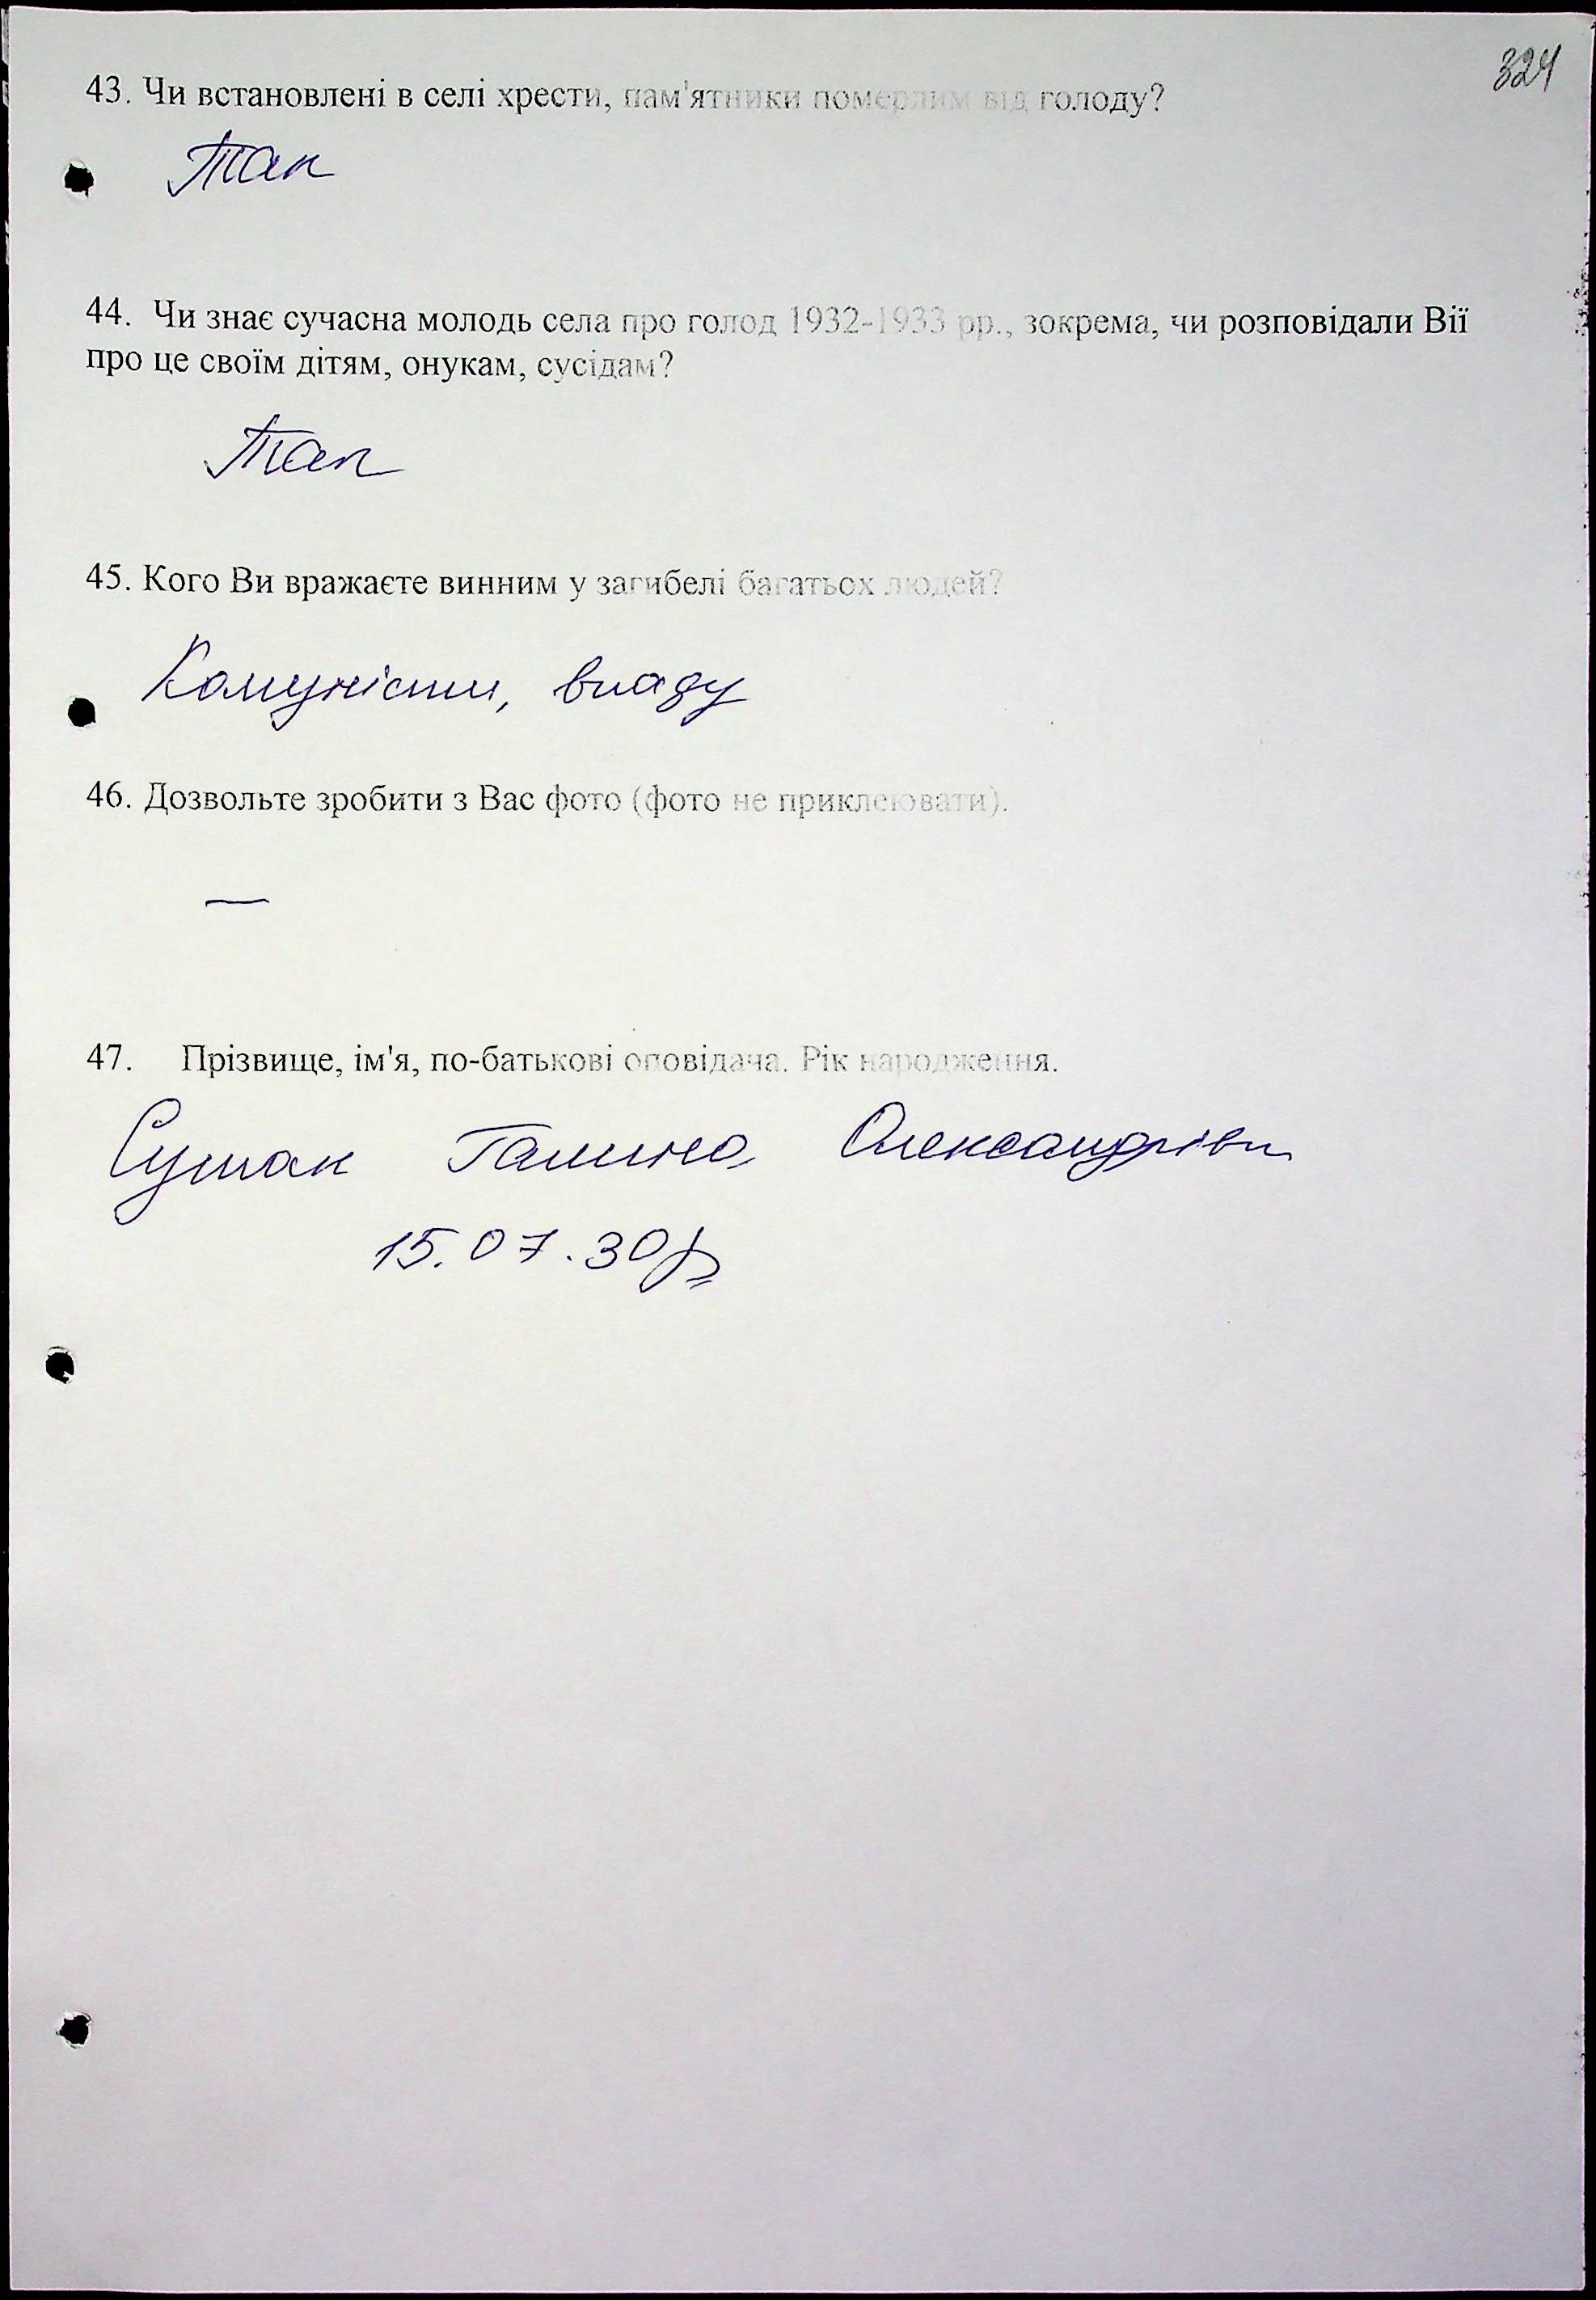 324
43. Чи встановлені в селі хрести, пам'ятники померлим від голоду?
Так
44. Чи знає сучасна молодь села про голод 1932-1933 рр., зокрема, чи розповідали Вії
про це своїм дітям, онукам, сусідам?
Так
45. Кого Ви вражаєте винним у загибелі багатьох людей?
Комуністи, владу
46. Дозвольте зробити з Вас фото (фото не приклеювати).
—
47. Прізвище, ім'я, по-батькові оповідача. Рік народження.
Галина
15.07.30р